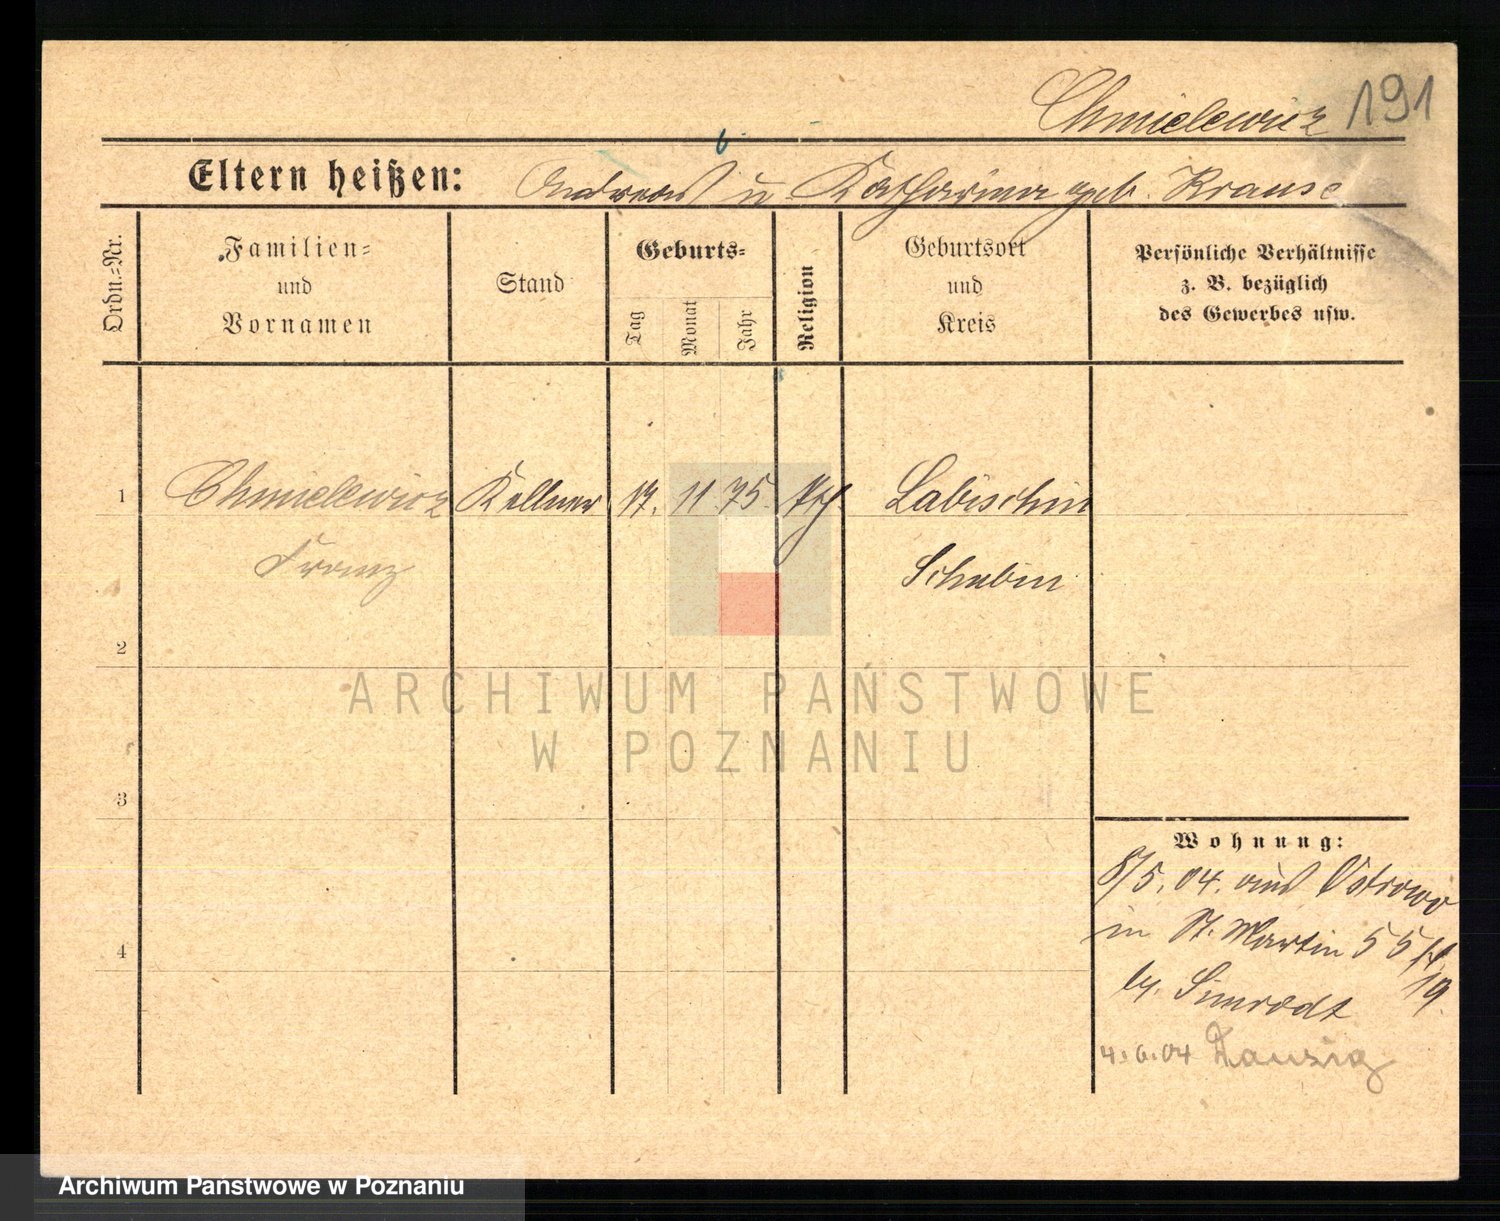 Chmielewicz 191
Eltern heißen: Andreas u. Katharina geb. Krause
Ordn.=Nr.
Familien=
und
Vornamen
Stand
Geburts=
Tag
Monat
Jahr
Religion
Geburtsort
und
Kreis
Persönliche Verhältnisse
z. B. bezüglich
des Gewerbes usw.
1 Chmielewicz Kellner 17. 11. 75. Labischin
Franz Schubin
2
ARCHIWUM PAŃSTWOWE
W POZNANIU
3
Wohnung:
8/5. 04. aus Ostrowo
in St. Martin 55
19.
by. Simrodt
4
4.6.04 Danzig
Archiwum Państwowe w Poznaniu